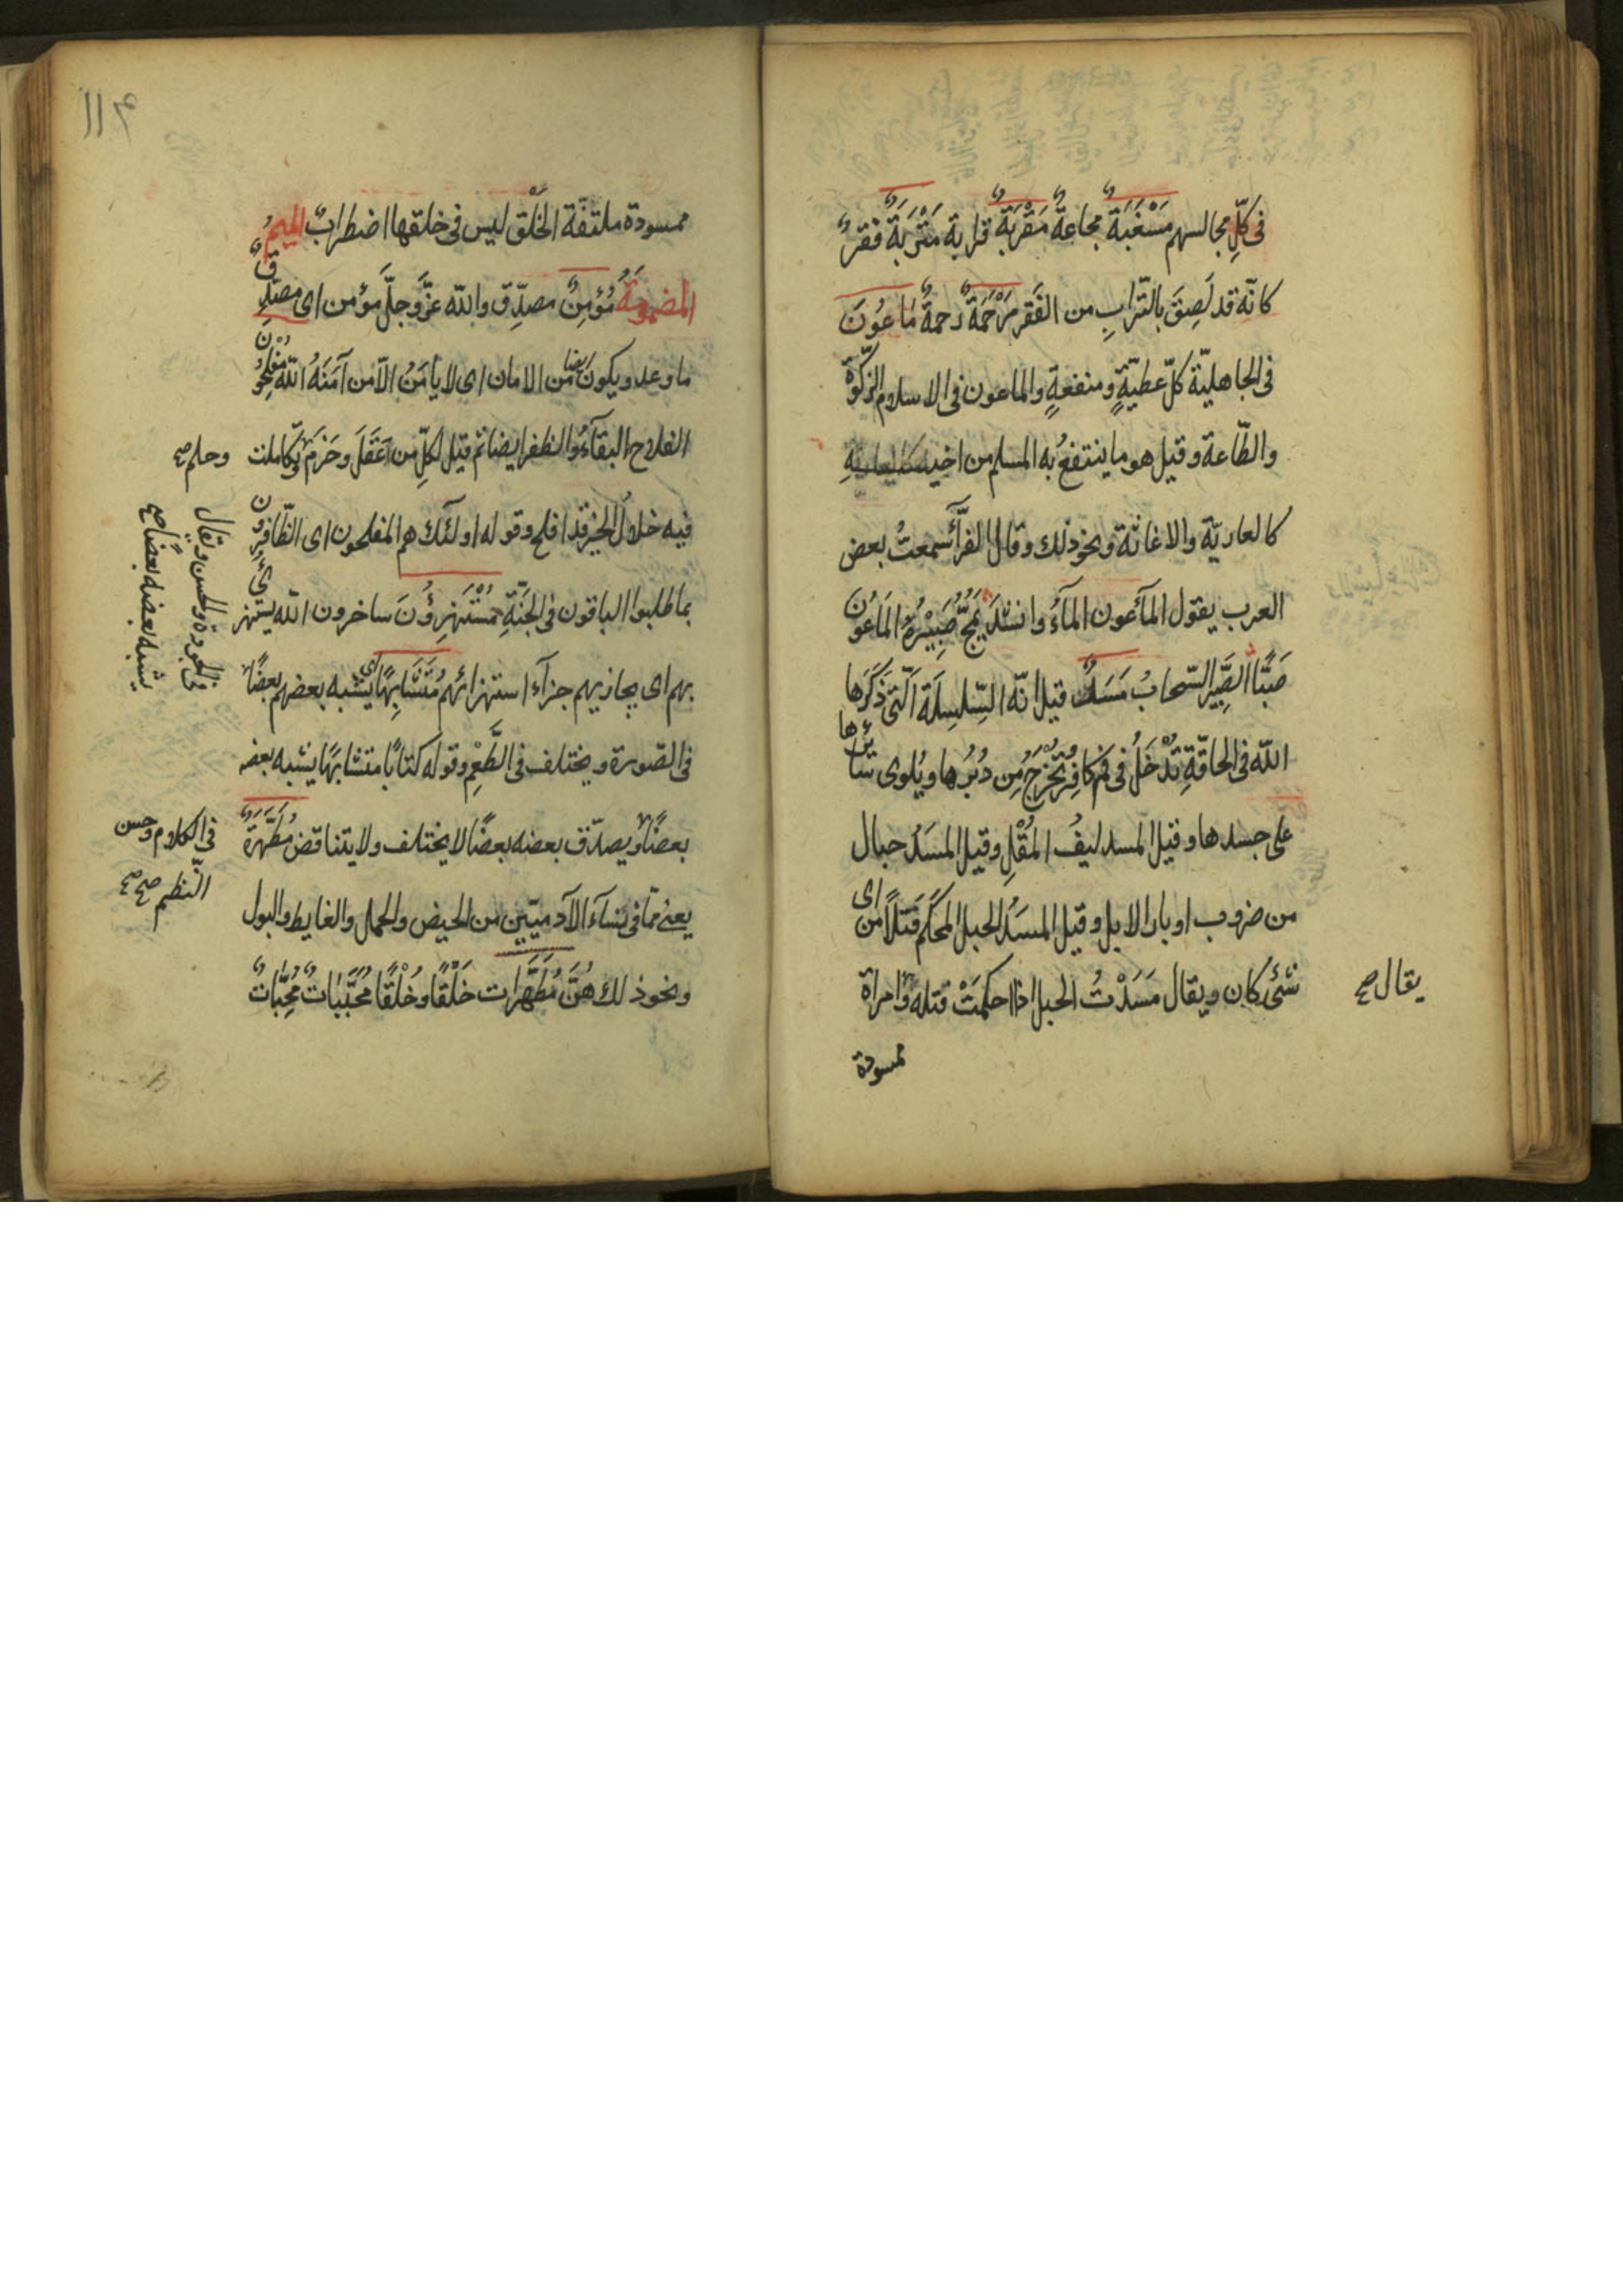 فى كلّ مجالسهم مَسْغَبَةٌ مجاعةٌ مَقْرَبَةٌ قرابة مَتْرَبَةٌ فقرٌ
كانّه قد لَصِقَ بالتّرابِ من الفَقر مَرْحَمَةٌ رحمةٌ مَاعُونَ
فى الجاهليّة كلّ عطيّةٍ ومنفعةٍ والماعون فى الاسلام الزّكوةُ
والطّاعة وقيل هو ما ينتفعُ به المسلم من اخيه
كالعاريّة والاغاثة ونحو ذلك وقال الفرّآء سمعتُ بعض
العرب يقول المآعون المآءُ وانشد يَمُجُّ صَبِيْرُهُ المَاعُونَ
صَبًّا الصَّبِير السّحابُ مَسَدٌ قيل انّه السِّلسِلَة الَّتى ذَكَرَها
اللّه فى الحاقّةِ تُدْخَلُ فى فم كافِرٍ وتُخْرَجُ مِن دُبُرِها ويُلوى سائرها
على جسدها وقيل المسد ليفُ المُقْلِ وقيل المسَدُ حبال
من ضروب اوبار الابل وقيل المسَدُ الحبل المحكم فَتلًا من اى
شئ كان ويقال مَسَدْتُ الحبل اذا احكمَتْ فتله وامراة
يقال صح
ممسودة
١١٤
ممسودة ملتفّة الخَلْق ليس فى خلقها اضطرابٌ الميمُ
المضمومَةُ مُؤمِنٌ مصدِّق واللّه عزَّ وجلَّ مؤمن اى مصدِّقٌ
ما وعد ويكون ايضا من الامان اى لا يأمَنُ الّا من آمَنَهُ اللّه مُفْلِحُونَ
الفلاح البقآءُ والظفر ايضا ثم قيل لكلّ من عَقَلَ وحَزَمَ وتكاملت
وحلم صح
فيه خلالُ الخير قد افلح وقوله اولئك هم المفلحون اى الظّافرون
بما طلبوا الباقون فى الجَنّةِ مُسْتَهزِؤُنَ ساخرون اللّه يستهزئ
بهم اى يجازيهم جزآء استهزائهم مُتَشَابِهًا اى يشبه بعضهم بعضًا
فى الصّورة ويختلف فى الطَّعْمِ وقوله كتابًا متشابهًا يشبه بعضه
بعضًا ويصدّق بعضه بعضًا لا يختلف ولا يتناقض مُطَهَّرَةٌ
يعنى ممّا فى نسآء الآدميّين من الحيض والحمل والغايط والبول
ونحو ذلك هُنَّ مُطَهَّرات خَلْقًا وخُلْقًا مُحَبَّبَاتٌ مُحِبَّاتٌ
يشبه بعضه بعضًا صح
فى الجودة والحسن ويقال
فى الكلام وحسن
النّظم صح صح